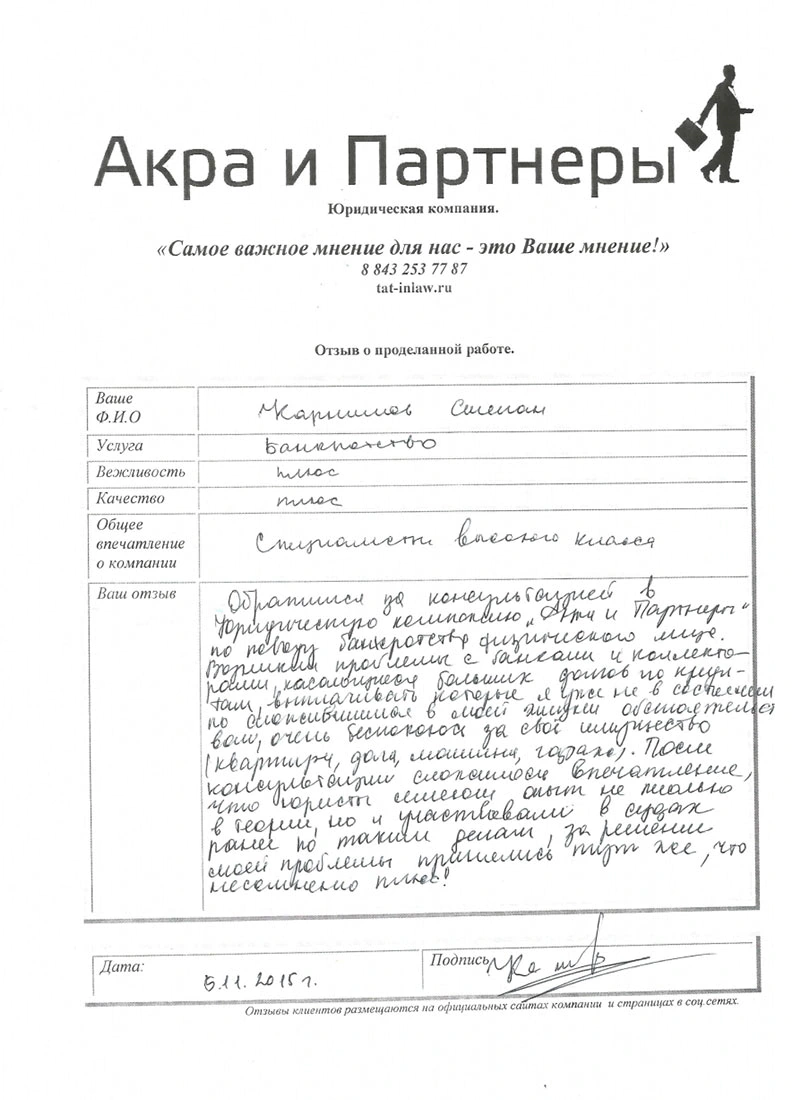 Акра и Партнеры
Юридическая компания.
«Самое важное мнение для нас - это Ваше мнение!»
8 843 253 77 87
tat-inlaw.ru
Отзыв о проделанной работе.
Ваше
Ф.И.О
Степан
Услуга Банкротство
Вежливость плюс
Качество плюс
Общее
впечатление
о компании
Специалисты высокого класса
Ваш отзыв Обратился за консультацией в
Юридическую компанию „Акра и Партнеры"
по поводу банкротства физического лица.
Возникли проблемы с банками и коллекто-
рами, касающиеся больших долгов по креди-
там, выплачивать которые я уже не в состоянии
по сложившимся в моей жизни обстоятельст
вам, очень беспокоюсь за своё имущество
(квартира, дача, машина, гараж). После
консультации сложилось впечатление,
что юристы имеют опыт не только
в теории, но и участвовали в судах
ранее по таким делам, за решение
моей проблемы принялись тут же, что
несомненно плюс!
Дата: 5.11.2015г.
Подпись
Отзывы клиентов размещаются на официальных сайтах компании и страницах в соц.сетях.